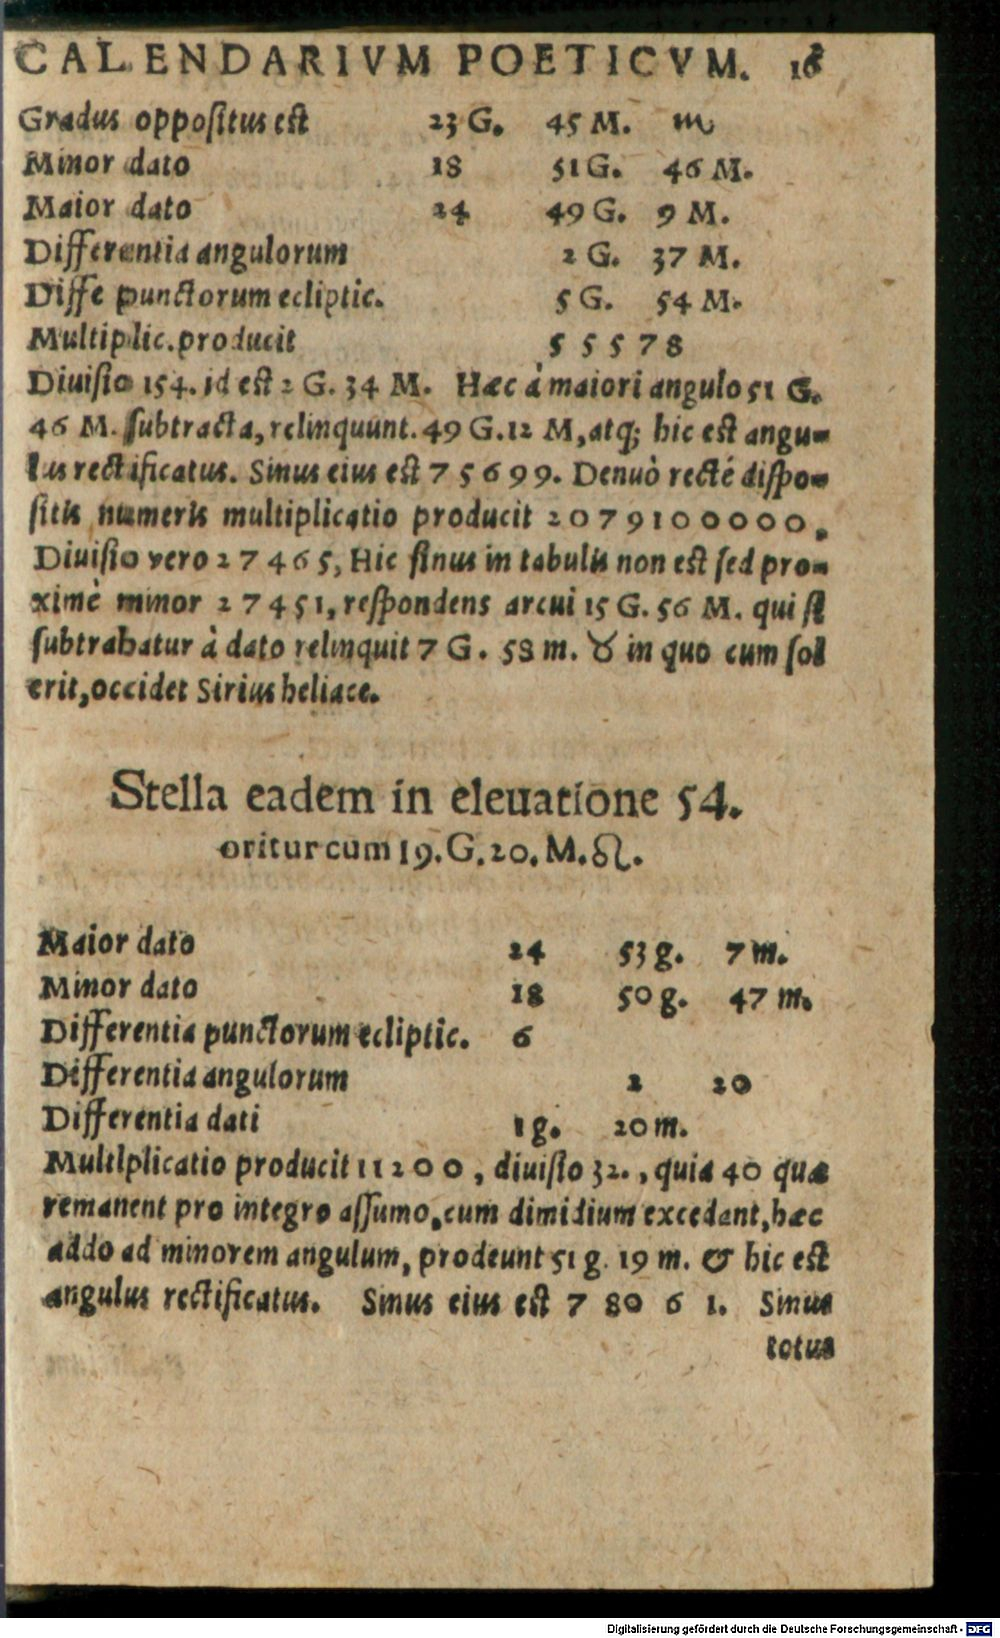 CALENDARIVM POETICVM. 16
Gradus oppoſitus eſt 23 G. 45 M. ♏
Minor dato 18 51 G. 46 M.
Maior dato 24 49 G. 9 M.
Differentia angulorum 2 G. 37 M.
Diffe punctorum ecliptic. 5 G. 54 M.
Multiplic. producit 5 5 5 7 8
Diuiſio 154. id eſt 2 G. 34 M. Hæc à maiori angulo 51 G.
46 M. ſubtracta, relinquunt. 49 G. 12 M, atq; hic eſt angu-
lus rectificatus. Sinus eius eſt 7 5 6 9 9. Denuò recté diſpo-
ſitis numeris multiplicatio producit 2 0 7 9 1 0 0 0 0 0.
Diuiſio vero 2 7 4 6 5, Hic ſinus in tabulis non eſt ſed pro-
ximè minor 2 7 4 5 1, reſpondens arcui 15 G. 56 M. qui ſi
ſubtrahatur à dato relinquit 7 G. 58 m. ♉ in quo cum ſol
erit, occidet Sirius heliace.
Stella eadem in eleuatione 54.
oritur cum 19. G. 20. M. ♌.
Maior dato 24 53 g. 7 m.
Minor dato 18 50 g. 47 m.
Differentia punctorum ecliptic. 6
Differentia angulorum 2 20
Differentia dati 1 g. 20 m.
Multlplicatio producit 1 1 2 0 0, diuiſio 32., quia 40 quæ
remanent pro integro aſſumo, cum dimidium excedant, hæc
addo ad minorem angulum, prodeunt 51 g. 19 m. & hic eſt
angulus rectificatus. Sinus eius eſt 7 80 6 1. Sinus
totus
Digitalisierung gefördert durch die Deutsche Forschungsgemeinschaft - DFG